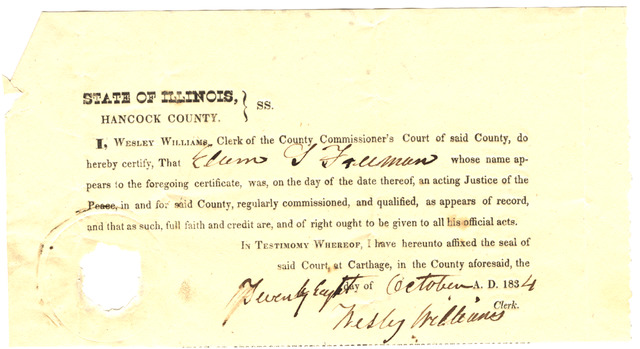 STATE OF ILLINOIS, } SS.
HANCOCK COUNTY.
I, WESLEY WILLIAMS, Clerk of the County Commissioner's Court of said County, do
hereby certify, That Elum S Freeman whose name ap-
pears to the foregoing certificate, was, on the day of the date thereof, an acting Justice of the
Peace, in and for said County, regularly commissioned, and qualified, as appears of record,
and that as such, full faith and credit are, and of right ought to be given to all his official acts.
IN TESTIMOMY WHEREOF, I have hereunto affixed the seal of
said Court, at Carthage, in the County aforesaid, the
Twenty Eight day of October A. D. 1834
Wesley Williams Clerk.